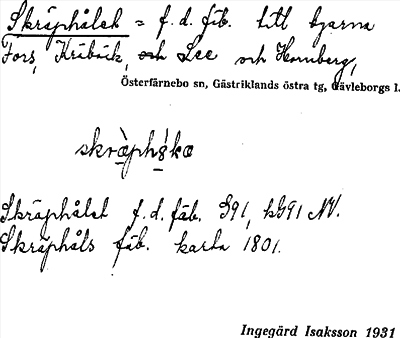 Skräphålet = f. d. fäb. till byarna
Fors, Kribäck, och Lee och Hornberg,
Österfärnebo sn, Gästriklands östra tg, Gävleborgs l.
Skräphålet f. d. fäb. G91, kG91 NV.
Skräphåls fäb. karta 1801.
Ingegärd Isaksson 1931